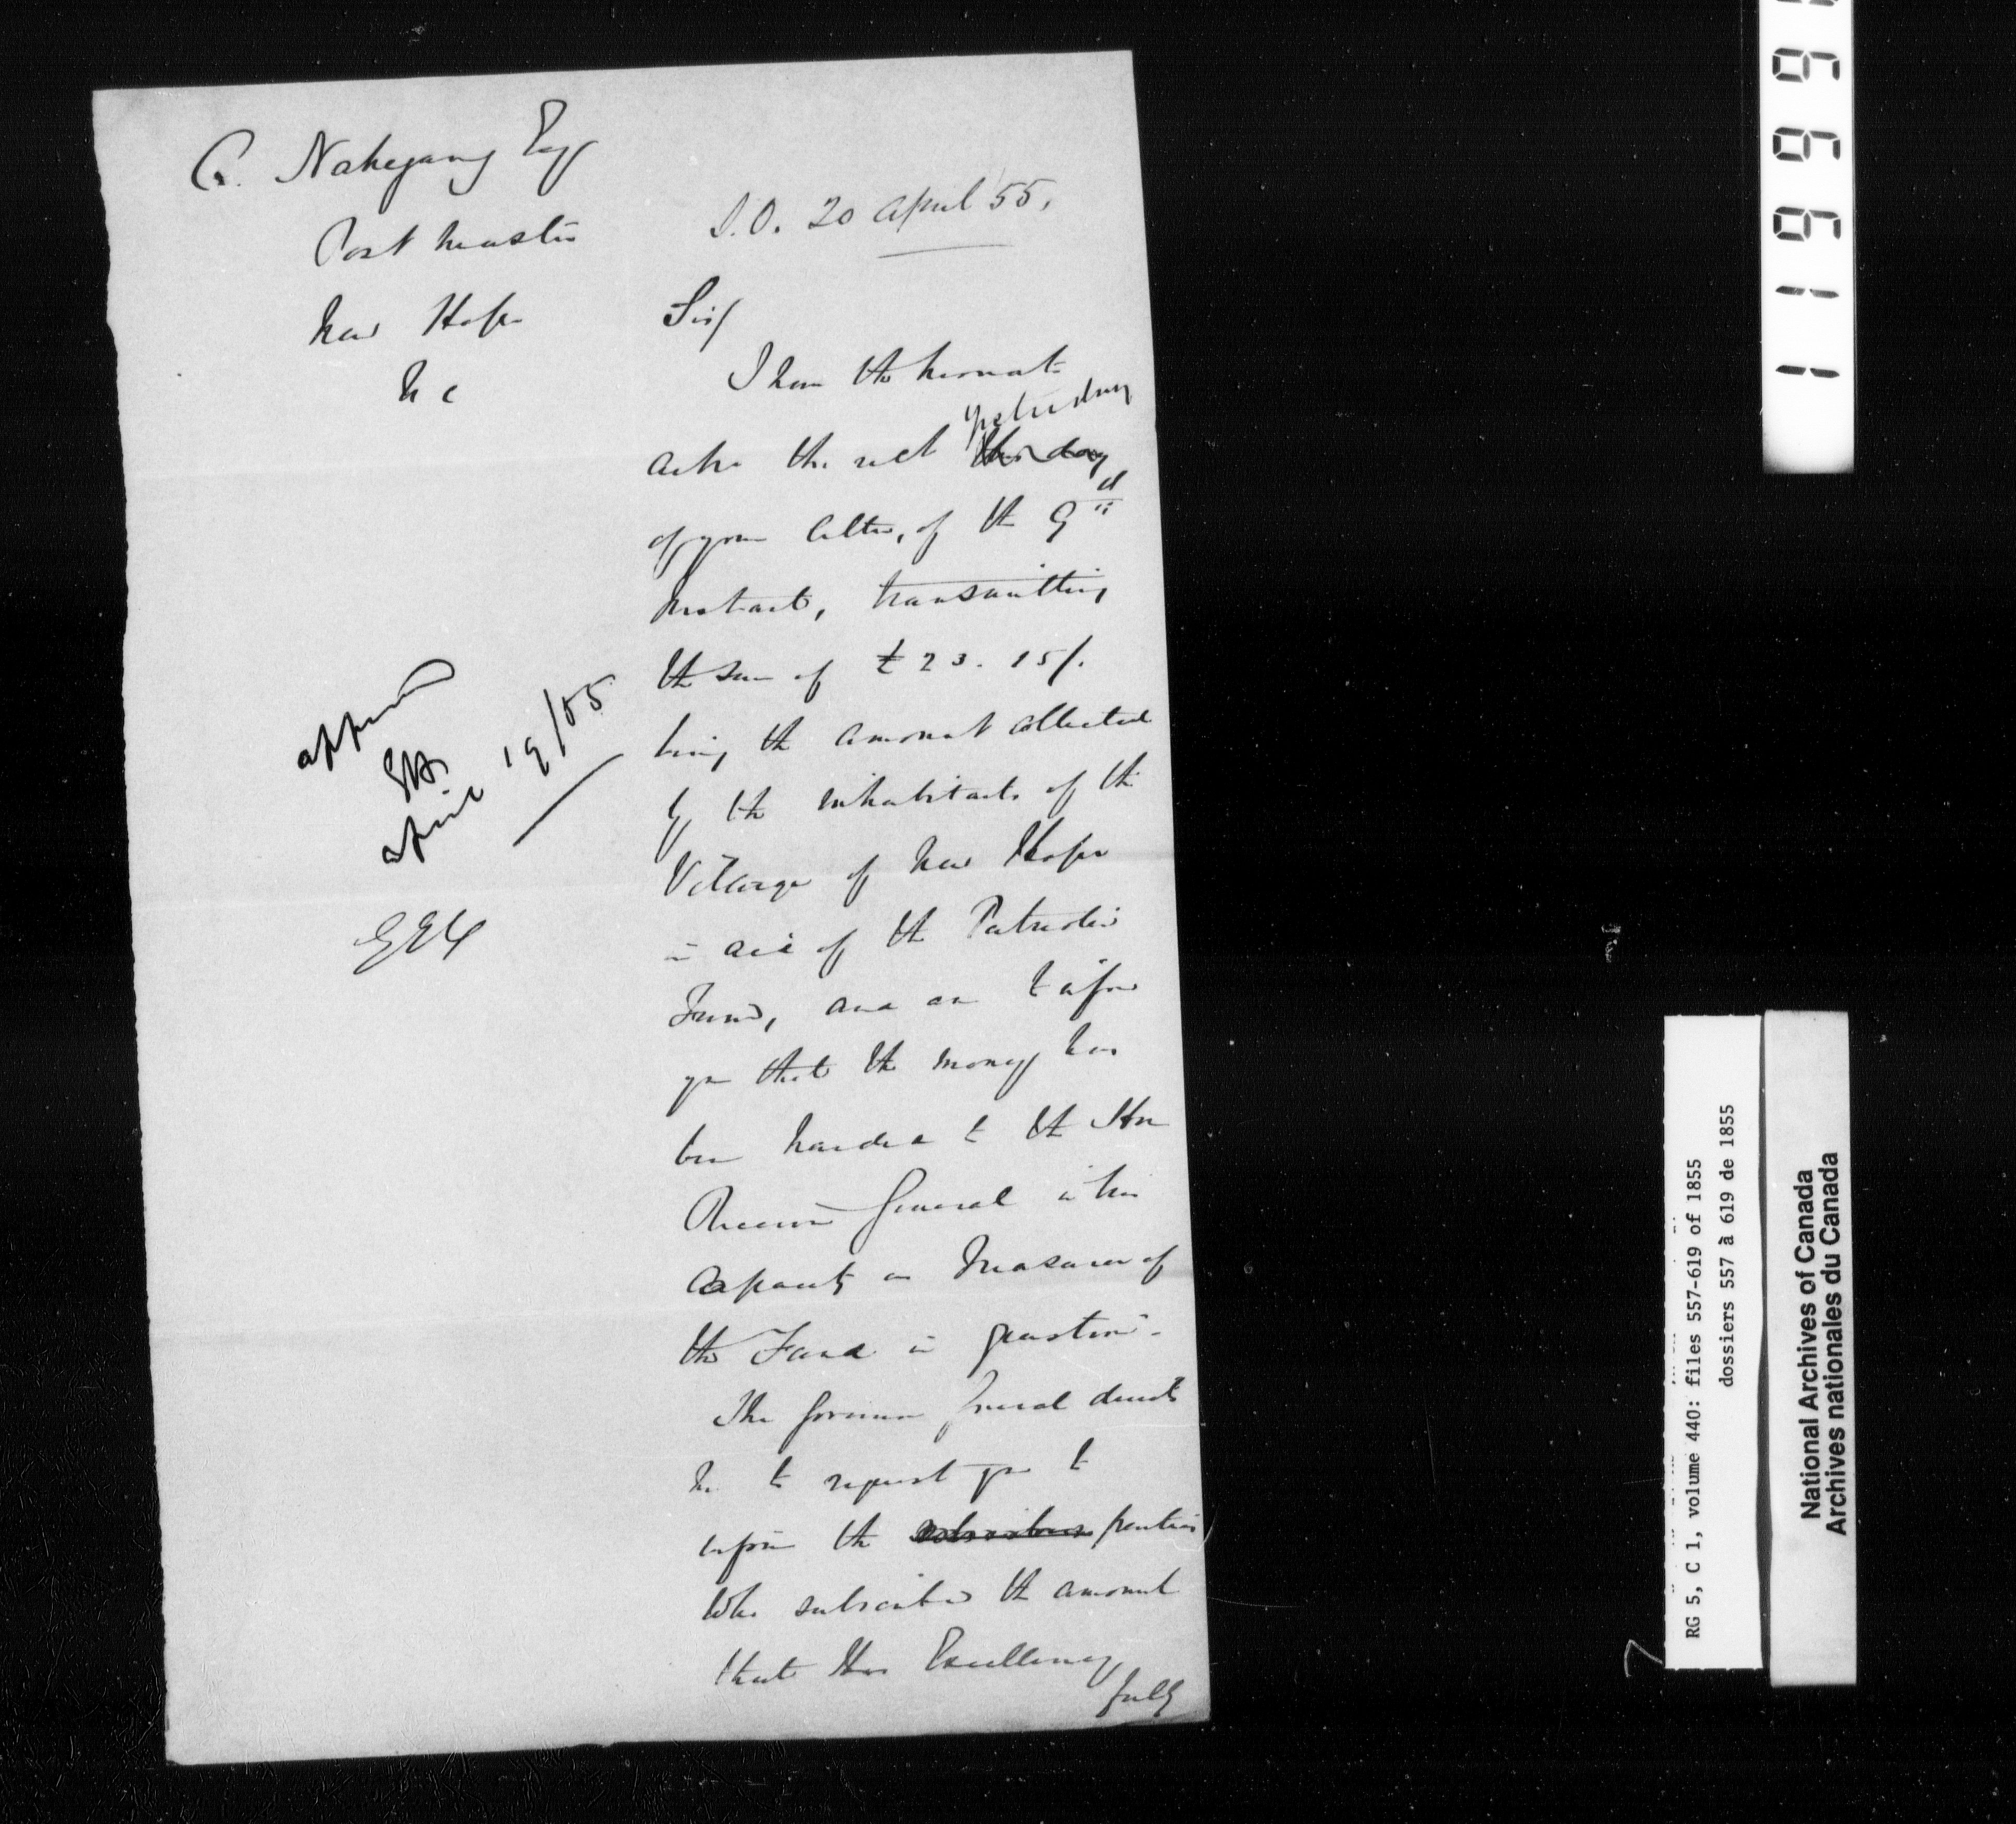 C. Nahrgang Esq
Post Master
New Hope
U C
S.O. 20 April '55.
Sir/
I have the honor to
ackn the rect this day yesterday
of your letter, of the 9th
Instant, transmitting
the sum of £23. 15/.
being the amount collected
by the inhabitants of the
Village of New Hope
in aid of the Patriotic
Fund, and am to inform
you that the money has
been handed to the Hon
Receiver General in his
Capacity as Treasurer of
the Fund in question.
The Governor General directs
me to request you to
inform the subscribers parties
who subscribed the amount
that His Excellency
fully
approved
April 19/55
RG 5, C 1, volume 440: files 557-619 of 1855
dossiers 557 à 619 de 1855
National Archives of Canada
Archives nationales du Canada